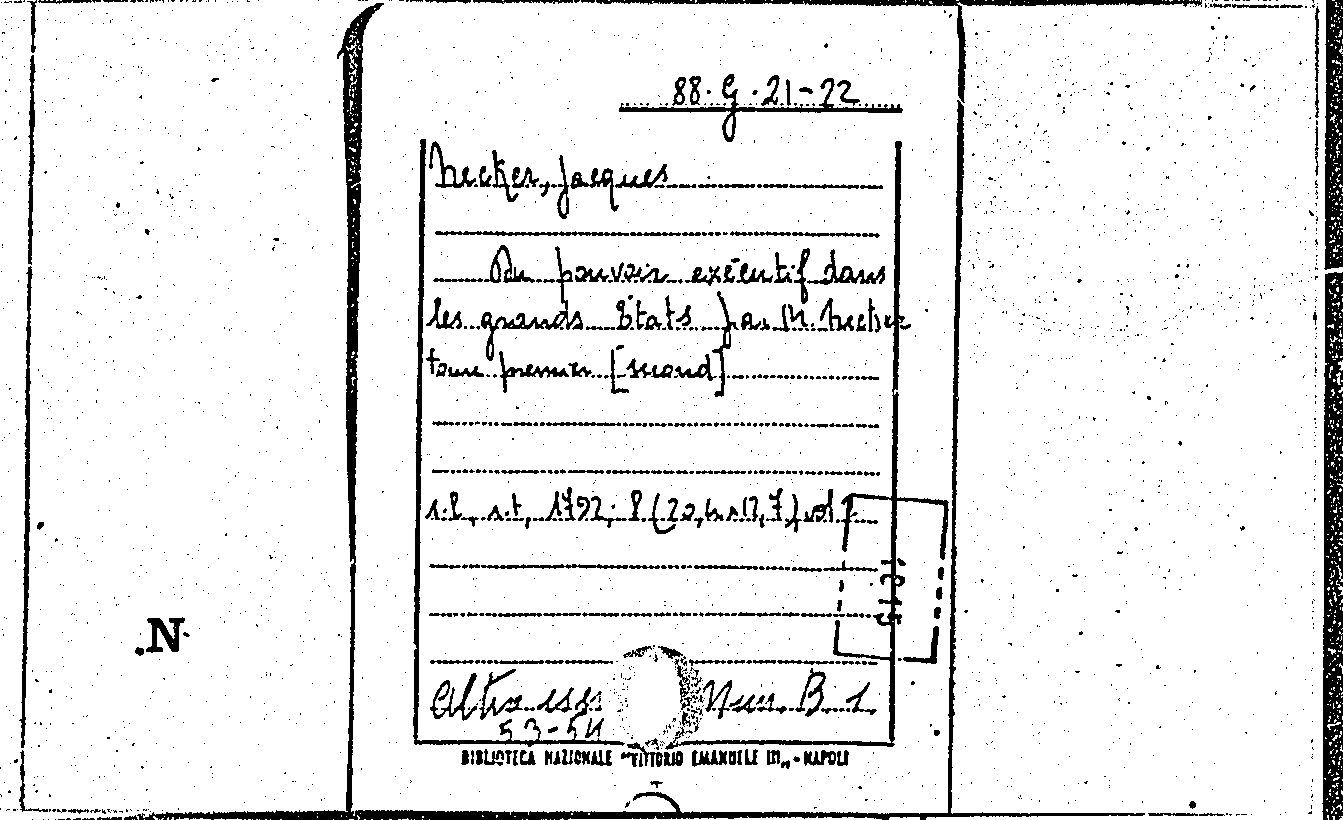 88. G. 21-22
Necker, Jacques
Du pouvoir exécutif dans
les grands États par M. Necker
tome premier [second]
s.l., s.t., 1792; 8 (20,4x12,7) vol 2
1815
.N.
Altro
Num. B. 1.
53-54
BIBLIOTECA NAZIONALE "VITTORIO EMANUELE III" - NAPOLI